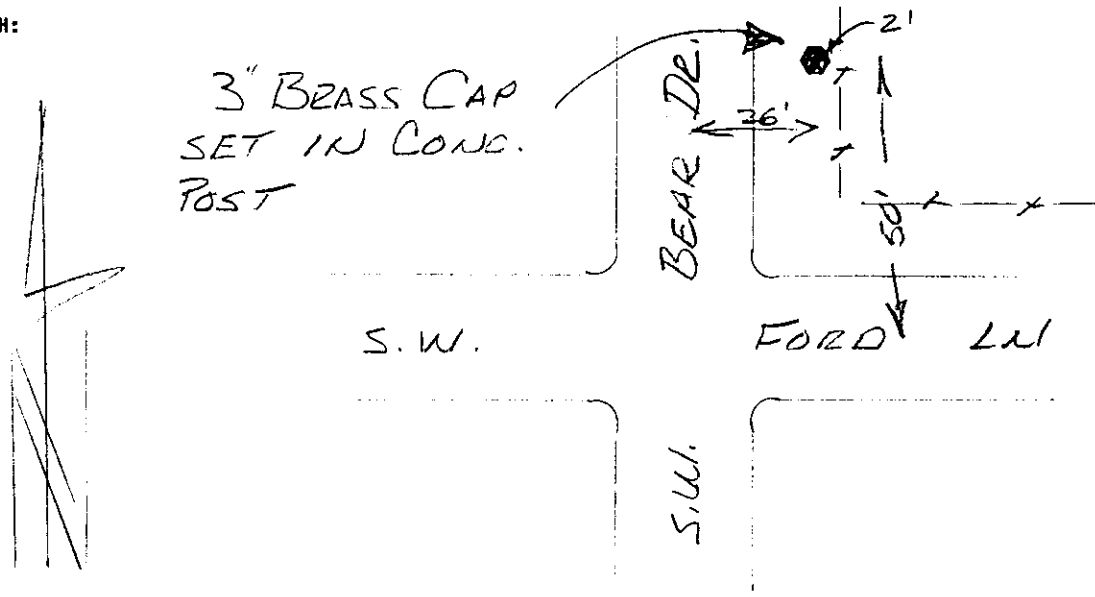 H:
2'
3" BRASS CAP
SET IN CONC.
POST
26'
S.W. BEAR DR.
50'
S.W. FORD LN